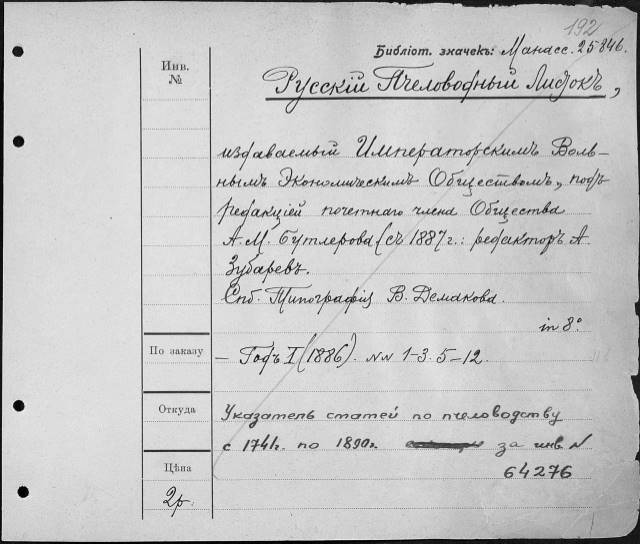 192
Библіот. значекъ: Манасс. 25846.
Инв. №
Русскій Пчеловодный Листокъ,
издаваемый Императорскимъ Воль-
нымъ Экономическимъ Обществомъ, подъ
редакціей почетнаго члена Общества
А. М. Бутлерова (съ 1887 г.: редакторъ А
Зубаревъ.
Спб. Типографія В. Демакова.
in 8°
По заказу
— Годъ I (1886). NN 1-3. 5-12.
Откуда
Указатель статей по пчеловодству
с 1741г. по 1890г. за инв N
64276
Цѣна
2р.